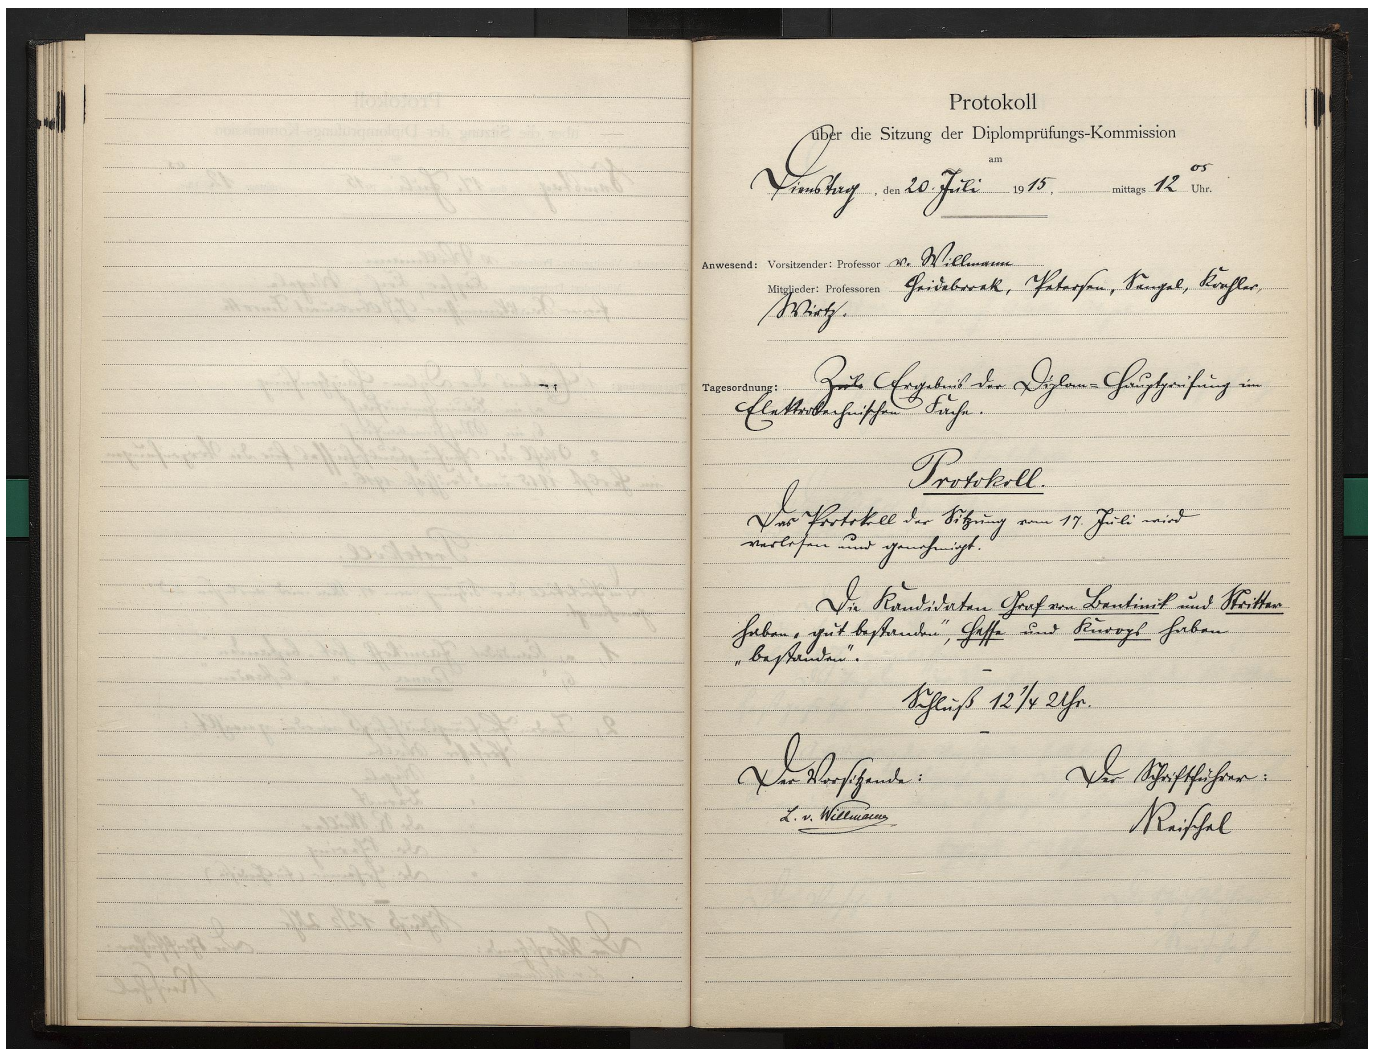 Protokoll
über die Sitzung der Diplomprüfungs-Kommission
am
Dienstag, den 20. Juli 1915, mittags 12 05 Uhr.
Anwesend: Vorsitzender: Professor v. Willmann
Mitglieder: Professoren Heidebroek, Petersen, Sengel, Koehler,
Wirtz.
Tagesordnung: Ergebnis der Diplom-Hauptprüfung im
Elektrotechnischen Fache.
Protokoll.
Das Protokoll der Sitzung vom 17. Juli wird
verlesen und genehmigt.
Die Kandidaten Graf von Bentinik und Stritter
haben „gut bestanden", Hesse und Knoops haben
„bestanden".
Schluß 12 1/4 Uhr.
Der Vorsitzende: Der Schriftführer:
L. v. Willmann Reischel